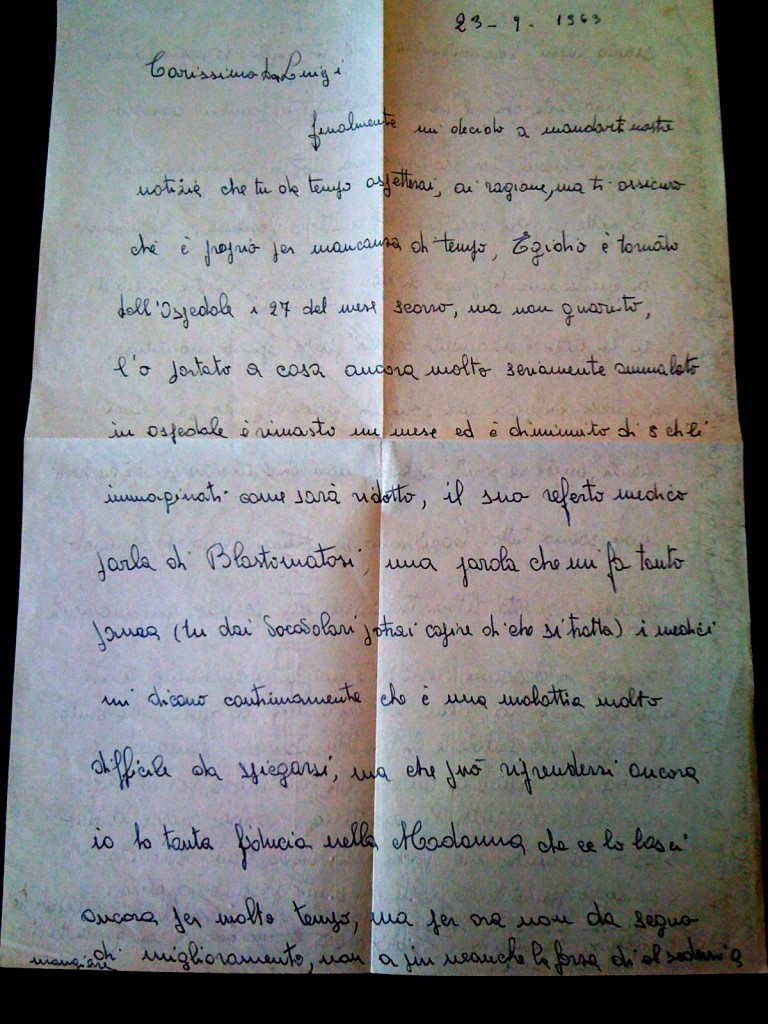 23-9-1963
Carissimo Luigi
finalmente mi decido a mandarti nostre
notizie che tu da tempo aspetterai, ai ragione, ma ti assicuro
che è proprio per mancanza di tempo, Egidio è tornato
dall'Ospedale i 27 del mese scorso, ma non guarito,
l'o portato a casa ancora molto seriamente ammalato
in ospedale è rimasto un mese ed è diminuito di 8 chili
immaginati come sarà ridotto, il suo referto medico
parla di Blastomatosi, una parola che mi fa tanto
paura (tu dai potrai capire di che si tratta) i medici
mi dicono continuamente che è una malattia molto
difficile da spiegarsi, ma che può riprendersi ancora
io ho tanta fiducia nella Madonna che ce lo lasci
ancora per molto tempo, ma per ora non da segno
di miglioramento, non a più neanche la forza di al sedersi a
mangiare